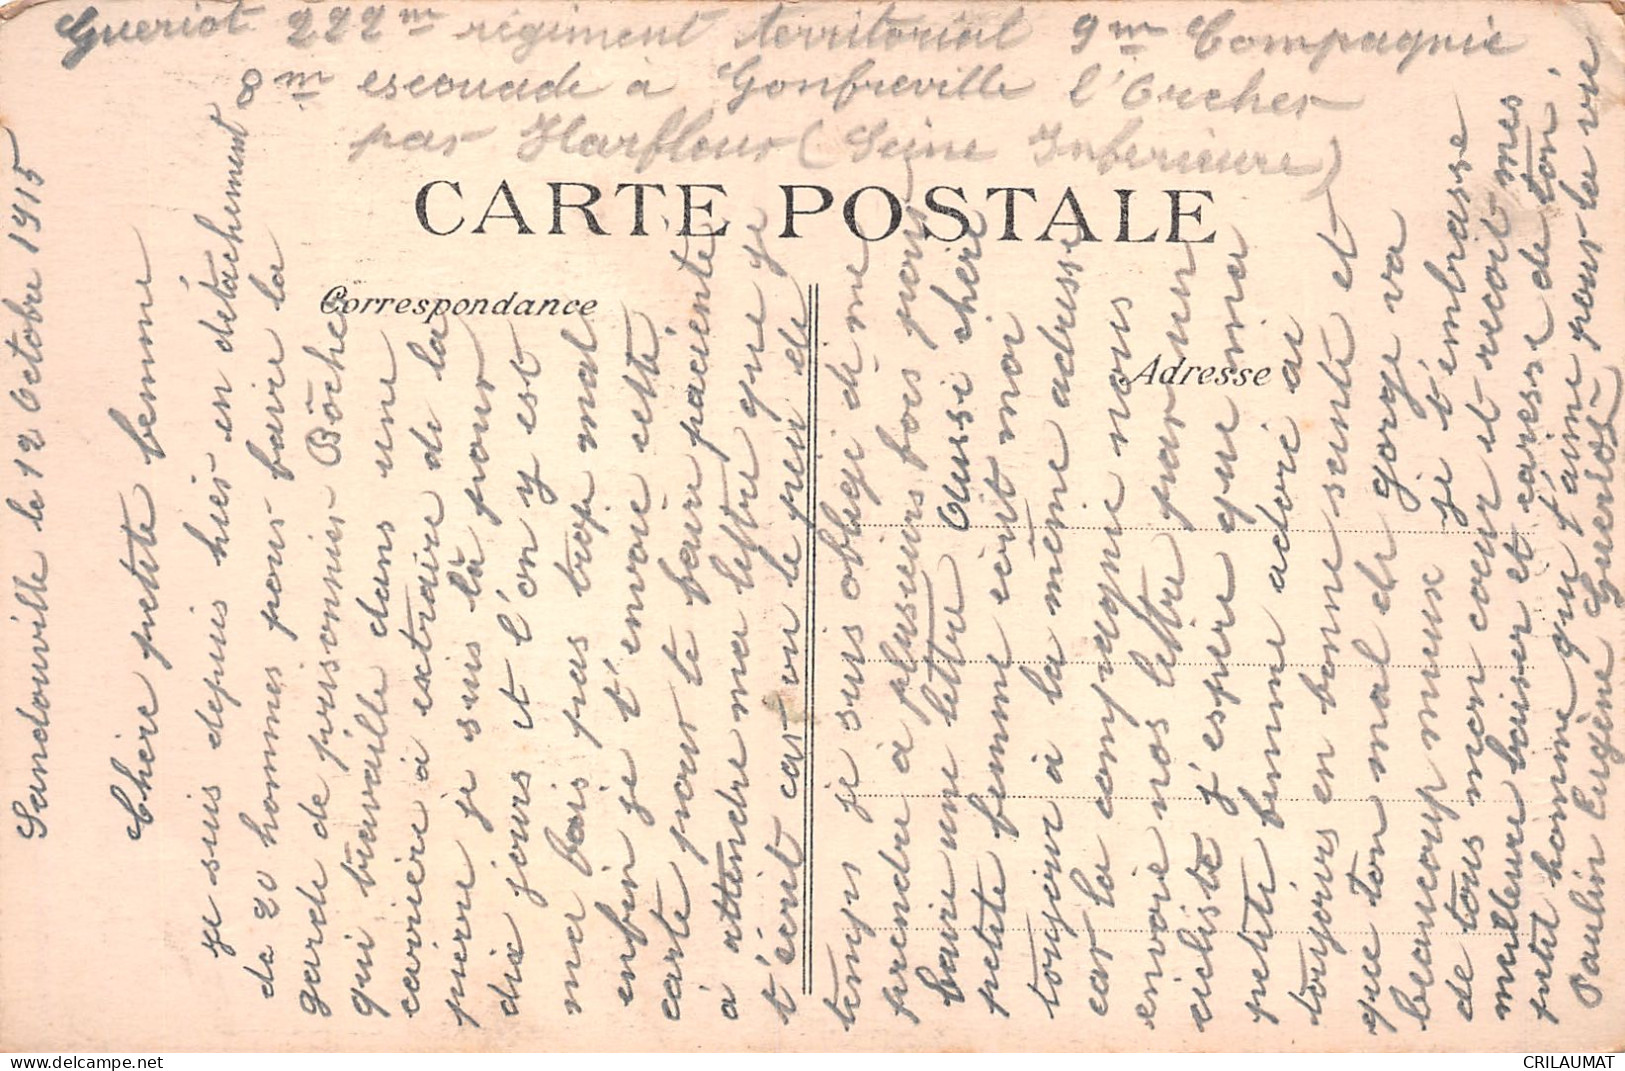 Gueriot 222me régiment territorial 9me Compagnie
8me escouade à Gonfreville l'Orcher
par Harfleur (Seine Inferieure)
CARTE POSTALE
Correspondance
Adresse
Sandouville le 12 Octobre 1915
Chère petite femme
je suis depuis hier en détachement
de 20 hommes pour faire la
garde de prisonnier Bôches
qui travaille dans une
carrière à extraire de la
pierre je suis là pour
dix jours et l'on y est
ma fois pas trop mal
enfin je t'envoie cette
carte pour te faire paciente
à attendre ma lettre que je
t'écrit car vu le peu de
temps je suis obligé de me
prendre à pluseurs fois pour
faire une lettre Ausse chère
petite femme écrit moi
toujour à la même adresse
car la compagnie nous
envoie nos lettre par un
cicliste j'espère que ma
petite femme adoré ai
toujours en bonne santé et
que ton mal de gorge va
beaucoup mieux je t'embrasse
de tous mon cœur et recoit mes
meilleure baiser et caresse de ton
petit homme qui t'aime pour la vie
Paulin Eugène Gueriot
CRILAUMAT